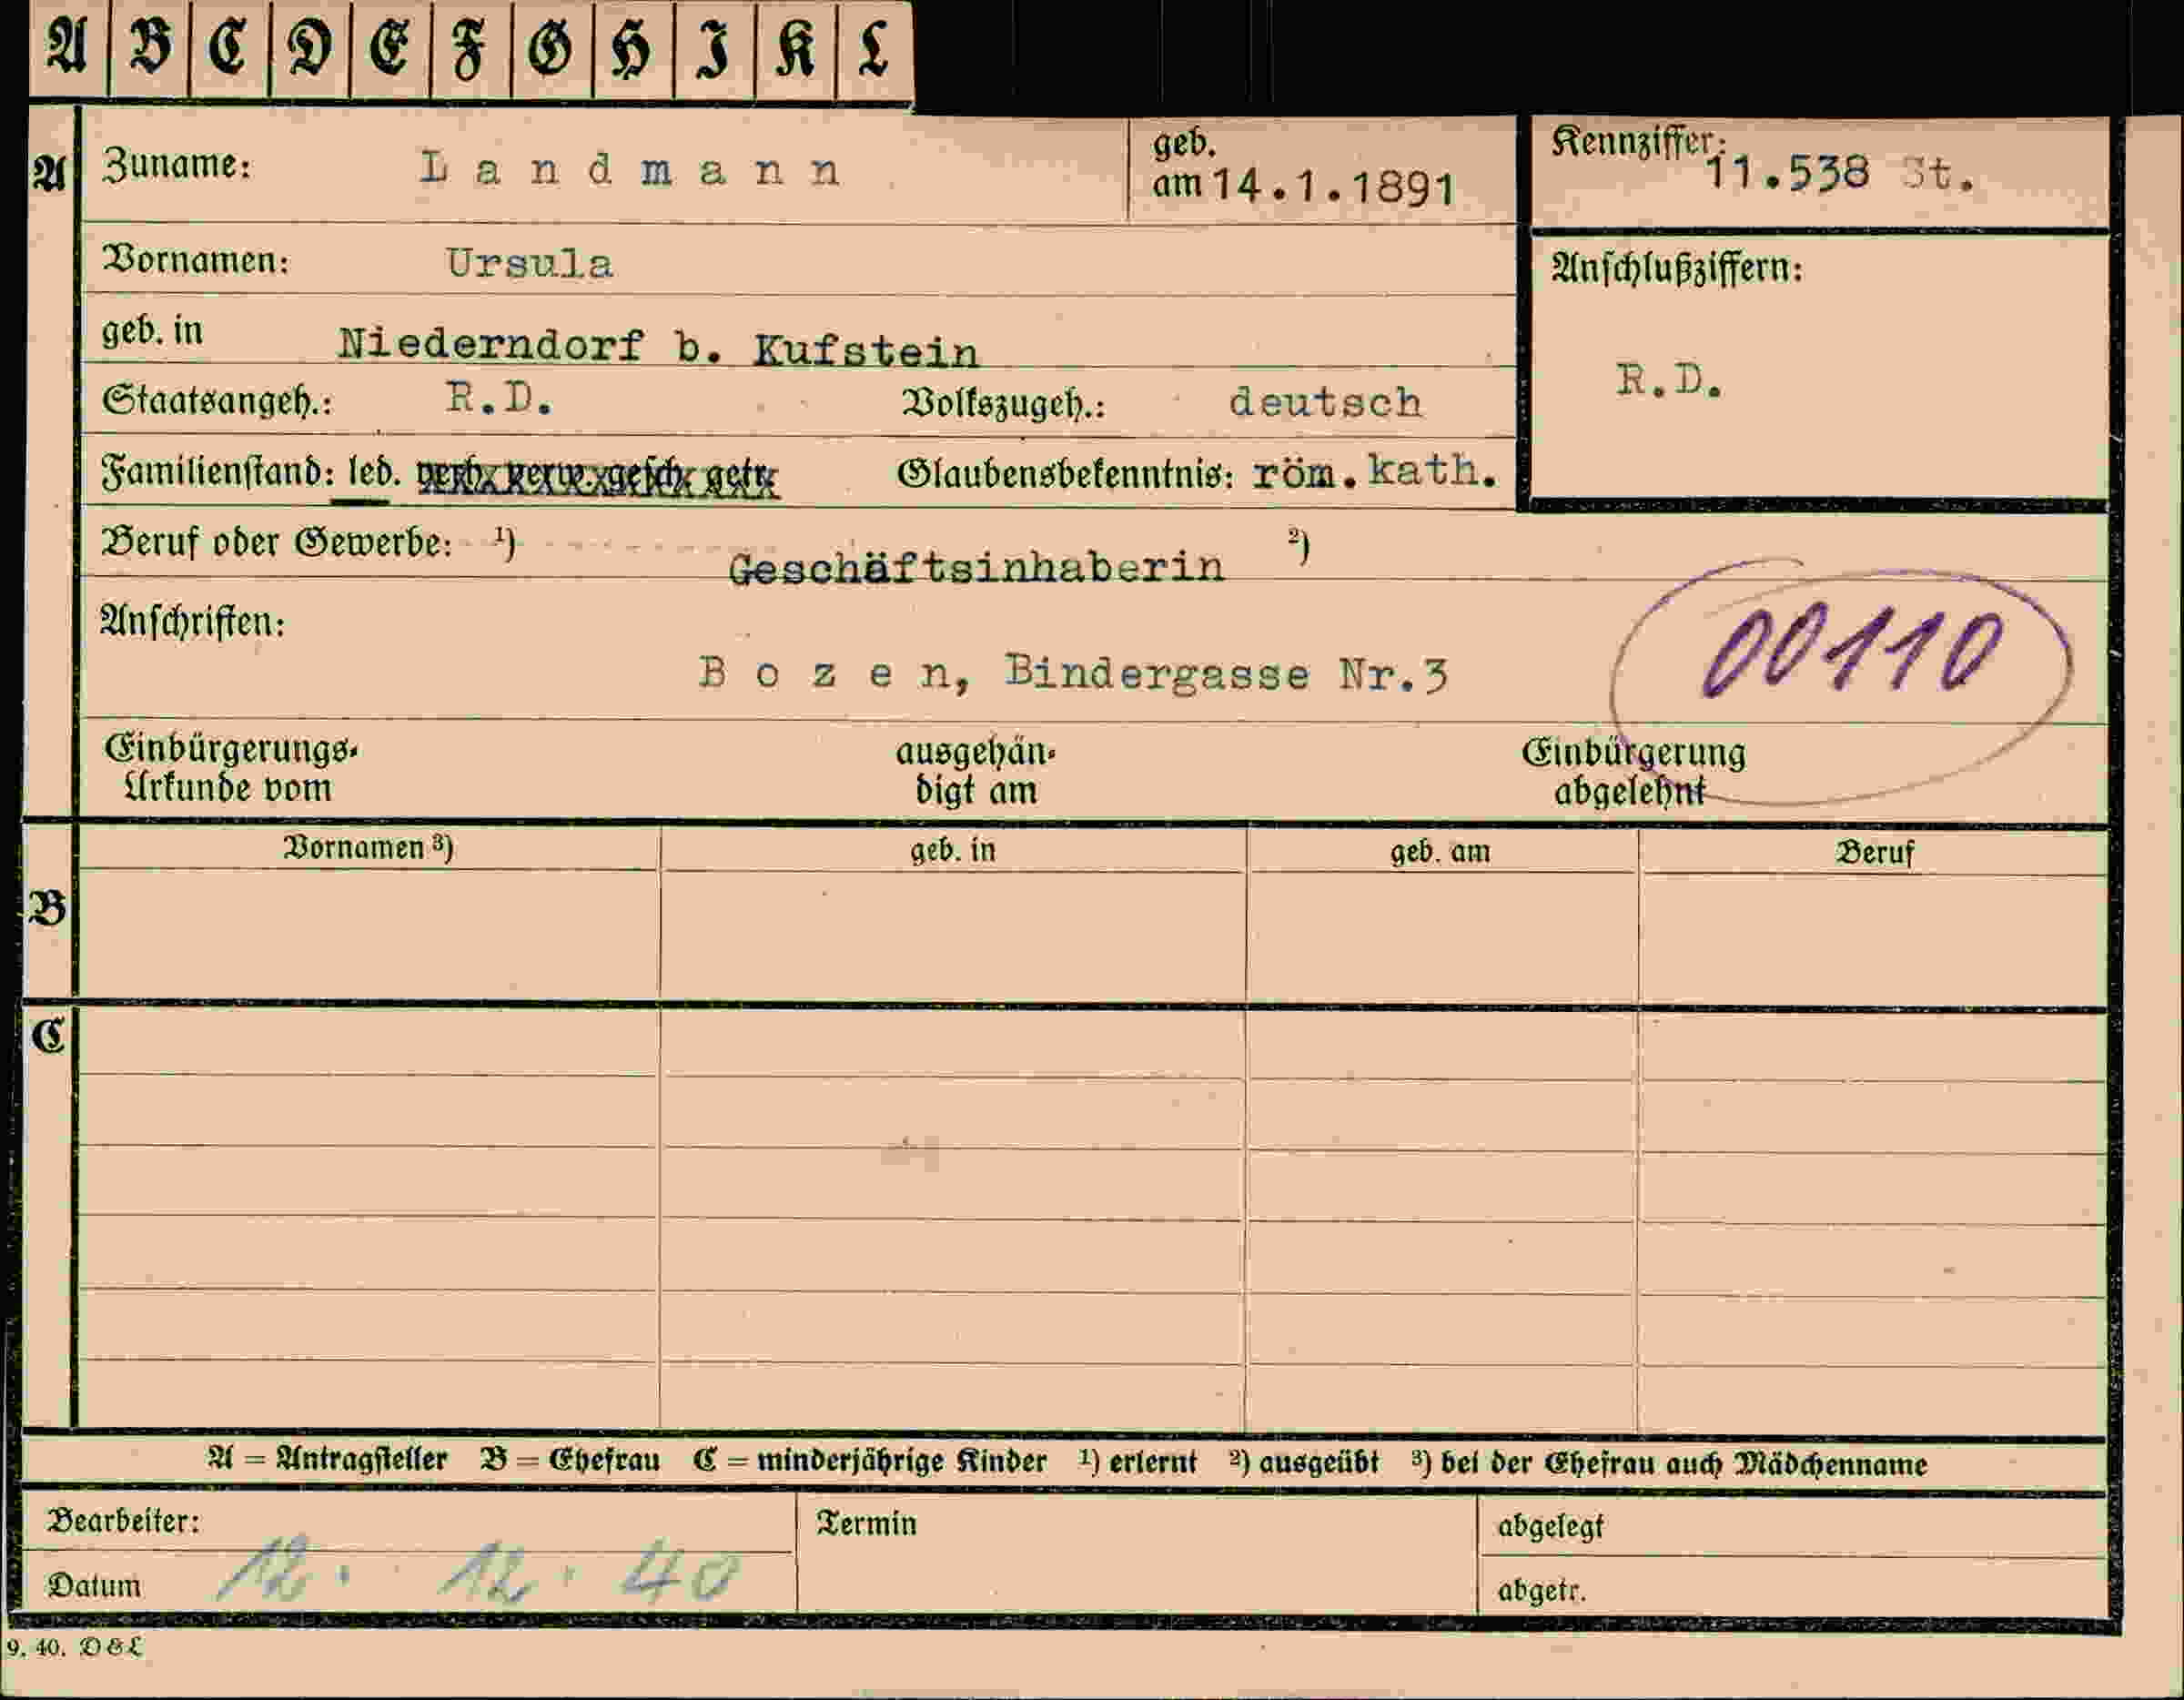 A B C D E F G H I K L
A Zuname: Landmann geb. am 14.1.1891 Kennziffer: 11.538 St.
Vornamen: Ursula Anschlußziffern:
geb. in Niederndorf b. Kufstein
R.D.
Staatsangeh.: R.D. Volkszugeh.: deutsch
Familienstand: led. verh. verw. gesch. getr. Glaubensbekenntnis: röm.kath.
Beruf oder Gewerbe: ¹) Geschäftsinhaberin ²)
Anschriften:
00110
Bozen, Bindergasse Nr.3
Einbürgerungs- ausgehän- Einbürgerung
Urkunde vom digt am abgelehnt
Vornamen ³) geb. in geb. am Beruf
B
C
A = Antragsteller B = Ehefrau C = minderjährige Kinder ¹) erlernt ²) ausgeübt ³) bei der Ehefrau auch Mädchenname
Bearbeiter: Termin abgelegt
Datum 12. 12. 40 abgetr.
9. 40. D&L